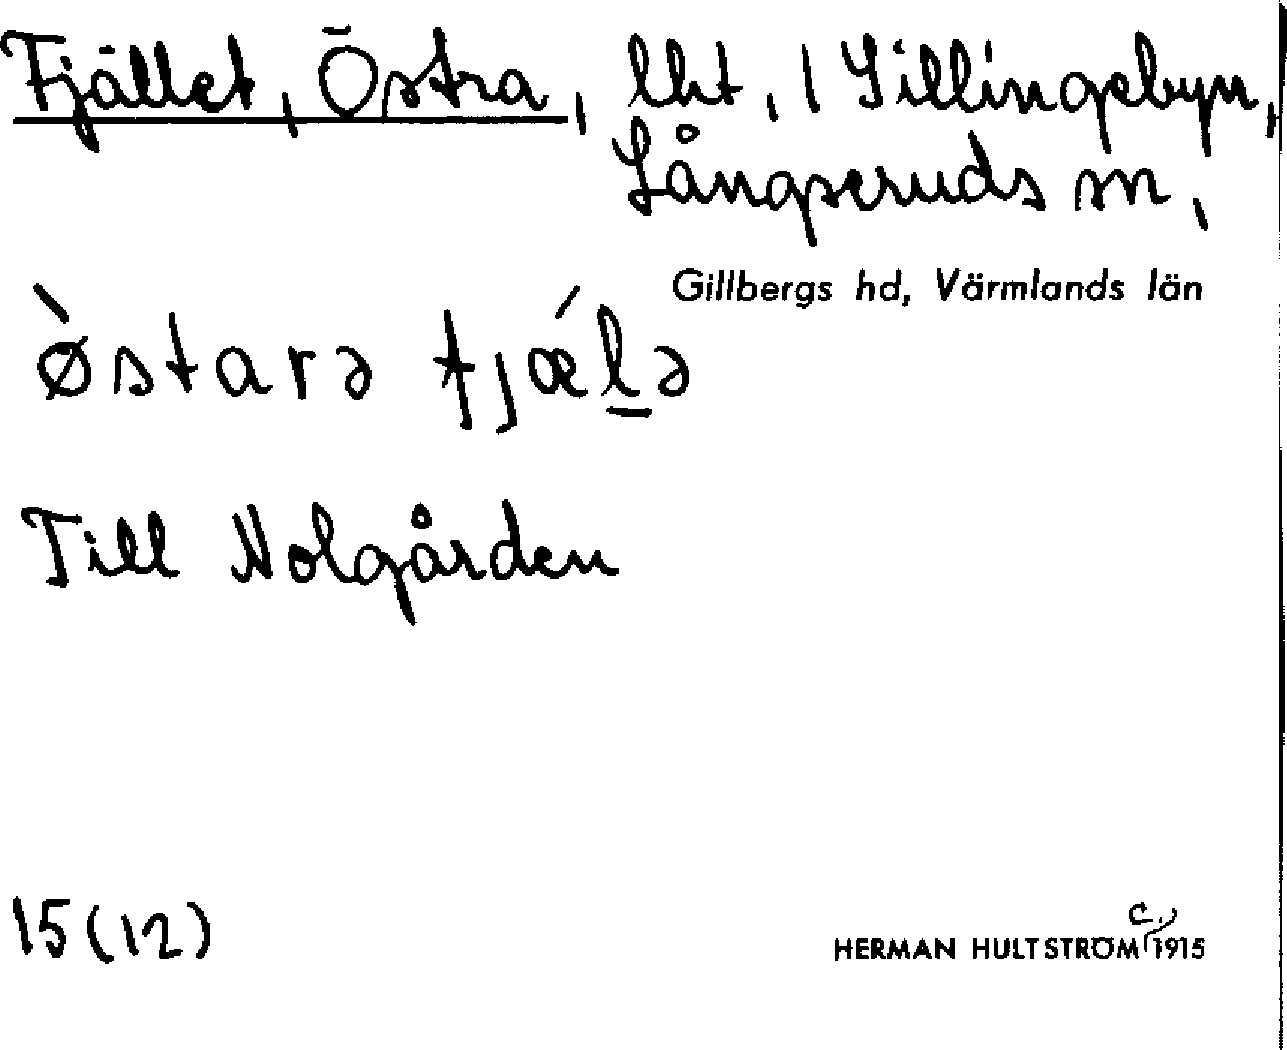 Fjället, Östra, lht, 1 Sillingebyn,
Långseruds sn,
Gillbergs hd, Värmlands län
ø̀starə fjǽl̲ə
Till Nolgården
15 (12)
c.
HERMAN HULTSTRÖM 1915